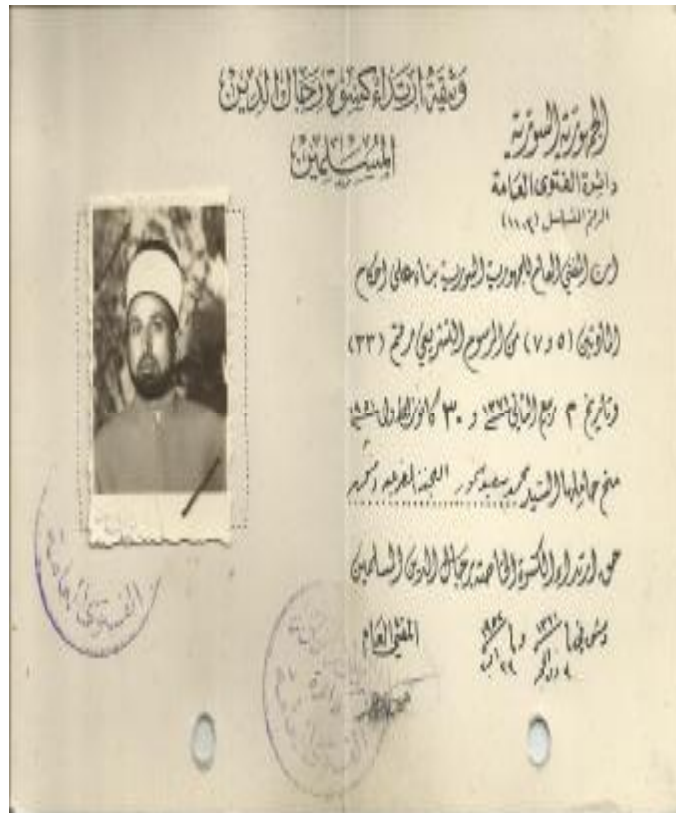 وثيقة ارتداء كسوة رجال الدين
المسلمين
الجمهورية السورية
دائرة الفتوى العامة
الرقم المتسلسل (١١٠٢)
ان المفتي العام للجمهورية السورية بناء على احكام
المادتين (٥ و ٧) من المرسوم التشريعي رقم (٣٣)
وتاريخ ٣ ربيع الثاني ١٣٧١ و ٣٠ كانون الاول ١٩٥١
منح حاملها السيد محمد سعيد
حق ارتداء الكسوة الخاصة برجال الدين المسلمين
دمشق في
المفتي العام
الفتوى العامة